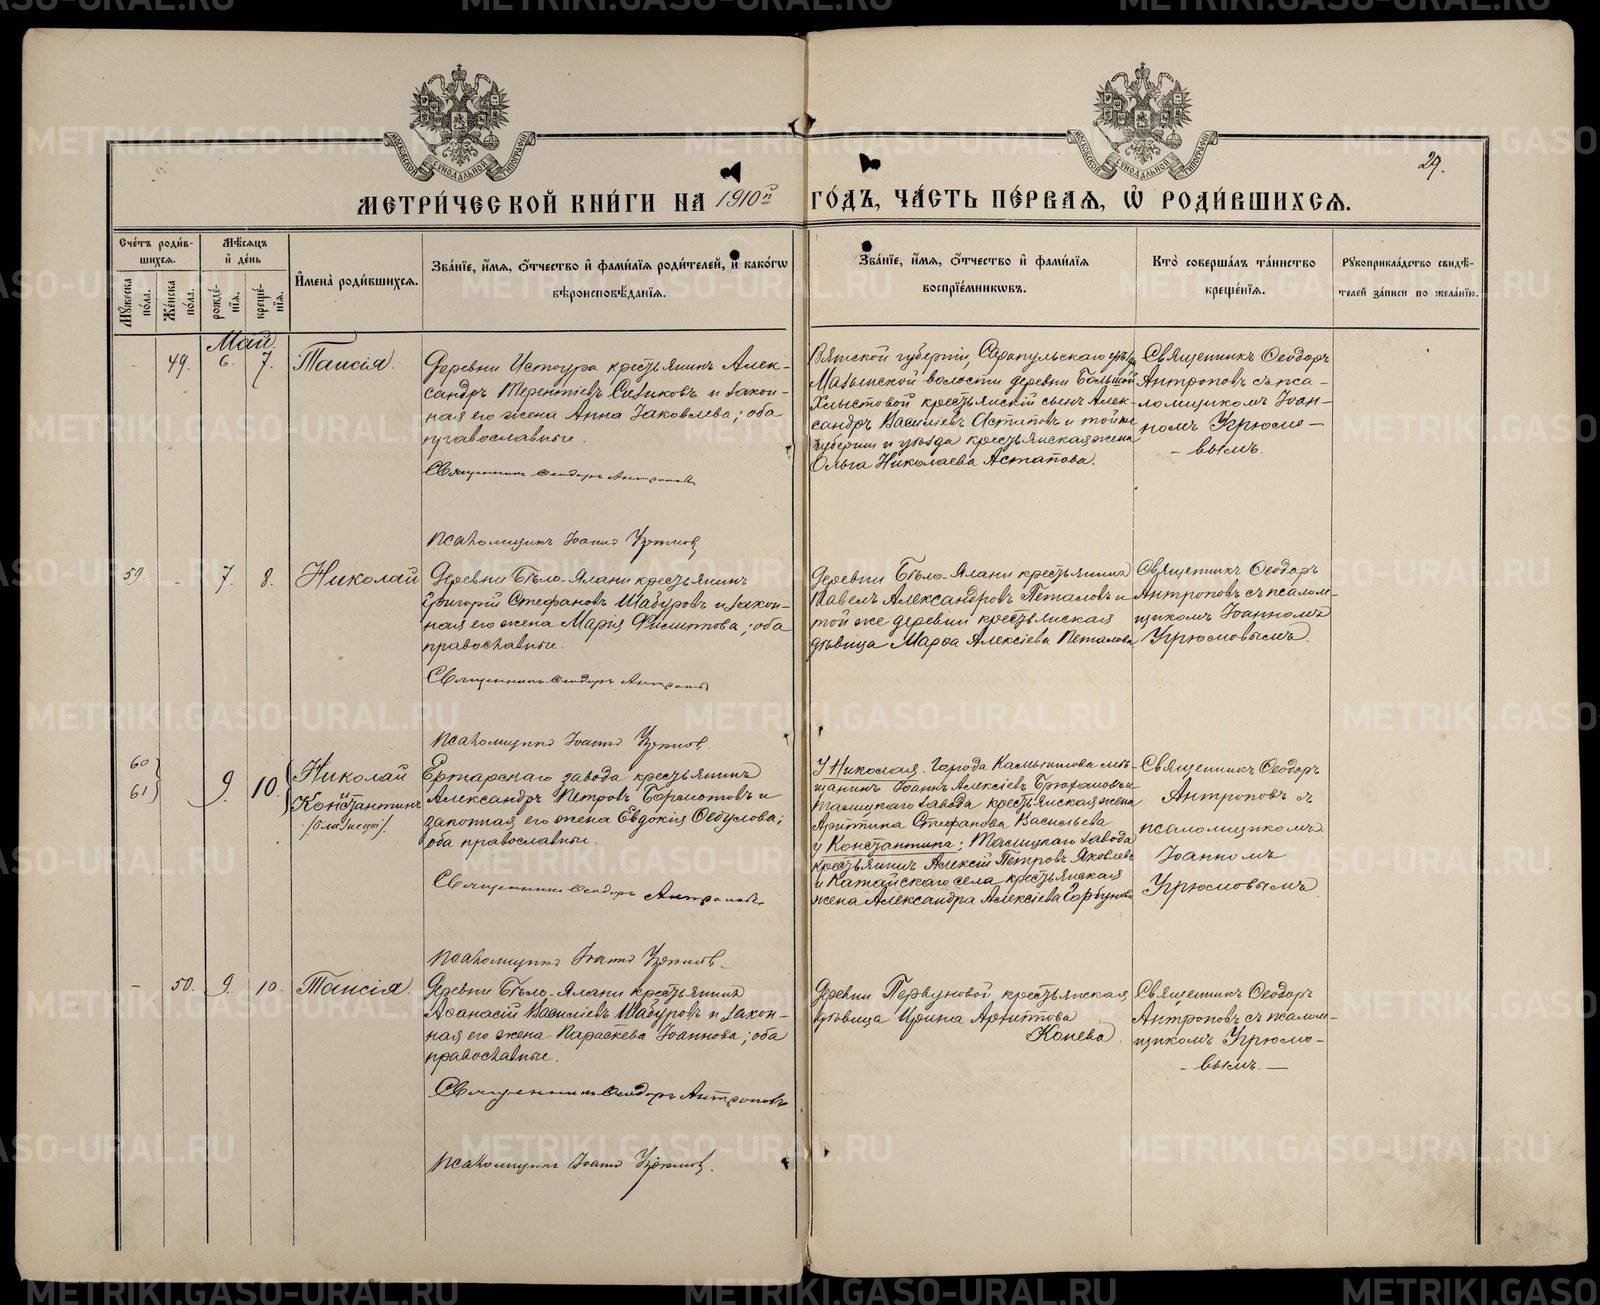 29.
МЕТРИ́ЧЕСКОЙ КНИ́ГИ НА 1910й ГО́ДЪ, ЧА́СТЬ ПЕ́РВАЯ, Ѽ РОДИ́ВШИХСЯ.
Сче́тъ роди́в-
шихся.
Му́жеска по́ла.
Же́нска по́ла.
Мѣ́сяцъ
и҆ де́нь
рожде́-
нїя.
креще́-
нїя.
И҆мена̀ роди́вшихся.
Зва́нїе, и҆́мя, ѻ҆́тчество и҆ фами́лїя роди́телей, и҆ како́гѡ
вѣроисповѣ́данїя.
Зва́нїе, и҆́мя, ѻ҆́тчество и҆ фами́лїя
воспрїе́мникѡвъ.
Кто̀ соверша́лъ та́инство
креще́нїя.
Рꙋкоприкла́дство свидѣ́-
телей за́писи по жела́нїю.
Май.
- 49. 6. 7. Таисія.
Деревни Истоура крестьянинъ Алек-
сандръ Терентіевъ Сизиковъ и закон-
ная его жена Анна Іаковлева; оба
православные.
Священникъ Ѳеодоръ Антроповъ
Псаломщикъ Іоаннъ Угрюмов
Вятской губерніи, Сарапульскаго уѣзда
Мазьинской волости деревни Большой
Хлыстовой крестьянскій сынъ Алек-
сандръ Василіевъ Астаповъ и той же
губерніи и уѣзда крестьянская жена
Ольга Николаева Астапова.
Священникъ Ѳеодоръ
Антроповъ съ пса-
ломщикомъ Іоан-
номъ Угрюмо-
- вымъ.
59. - 7. 8. Николай
Деревни Бѣло-Ялани крестьянинъ
Григорій Стефановъ Шабуровъ и закон-
ная его жена Марія Филиппова; оба
православные.
Священникъ Ѳеодоръ Антроповъ
Псаломщикъ Іоаннъ Угрюмов.
Деревни Бѣло-Ялани крестьянинъ
Павелъ Александровъ Петаловъ и
той же деревни крестьянская
дѣвица Марѳа Алексіева Петалова
Священникъ Ѳеодоръ
Антроповъ съ псалом-
щикомъ Іоанномъ
Угрюмовымъ.
60
61 9. 10. Николай
и
Константинъ
/близнецы/.
Ертарскаго завода крестьянинъ
Александръ Петровъ Бормотовъ и
законная его жена Евдокія Ѳедулова;
оба православные.
Священникъ Ѳеодоръ Антроповъ.
Псаломщикъ Іоаннъ Угрюмовъ.
У Николая: Города Камышлова мѣ-
щанинъ Іоаннъ Алексіевъ и
Талицкаго завода крестьянская жена
Стефанова Васильева
у Константина: Талицкаго завода
крестьянинъ Алексій Петровъ Яковлевъ
и Катайскаго села крестьянская
жена Александра Алексіева Горбунова
Священникъ Ѳеодоръ
Антроповъ съ
псаломщикомъ
Іоанномъ
Угрюмовымъ
- 50. 9. 10. Таисія.
Деревни Бѣло-Ялани крестьянинъ
Аѳанасій Василіевъ Шабуровъ и закон-
ная его жена Параскева Іоаннова; оба
православные.
Священникъ Ѳеодоръ Антроповъ
Псаломщикъ Іоаннъ Угрюмов.
Деревни Первуновой крестьянская
дѣвица Ирина Архиппова
Конева.
Священникъ Ѳеодоръ
Антроповъ съ псалом-
щикомъ Угрюмо-
- вымъ. -
METRIKI.GASO-URAL.RU